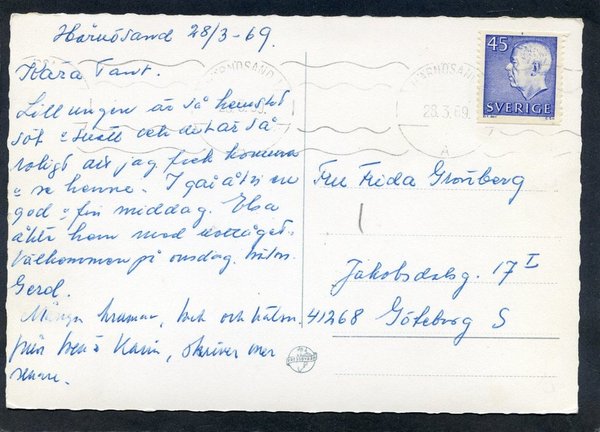 Härnösand 28/3-69.
Kära Tant.
Lill ungen är så hemskt
söt o snäll och det är så
roligt att jag fick komma
o se henne. I går åt vi en
god o fin middag. Elsa
åkte hem med nattåget.
Välkommen på onsdag.
Gerd.
Många kramar, och
från Karin, skriver mer
senare.
45
SVERIGE
HÄRNÖSAND
28.3.69
A
Fru Frida Gronberg
Jakobsdalsg. 17 I
41268 Göteborg S